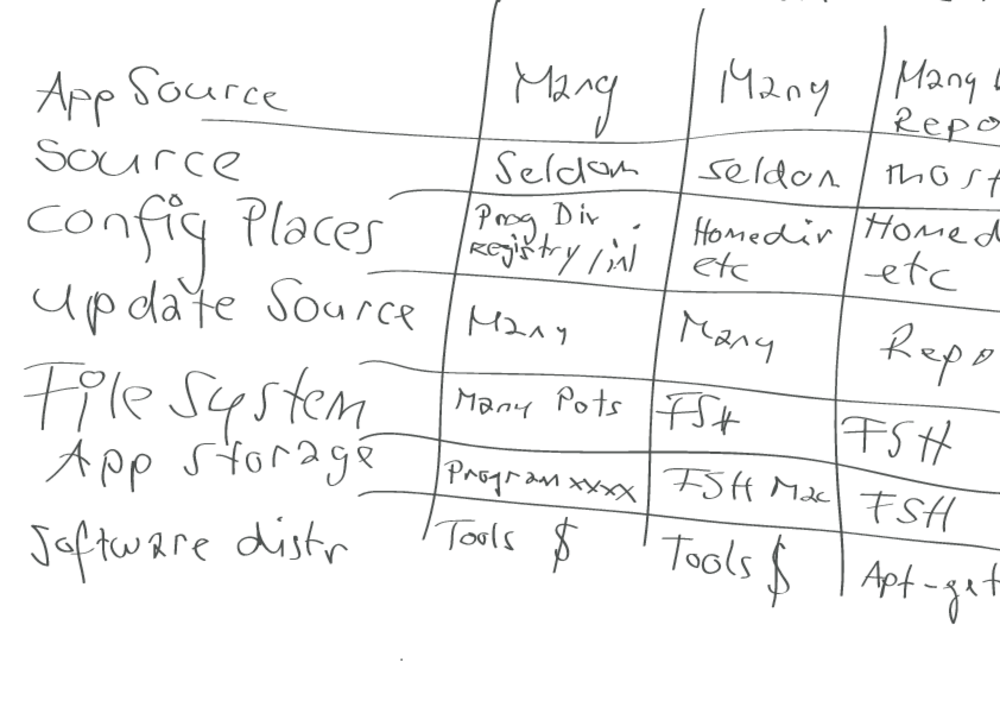 App Source Many Many Many
Repo
Source Seldom Seldon most
Config Places Prog Dir Homedir Homed
Registry / ini etc etc
Update Source Many Many Repo
File System Many Pots FSH FSH
App Storage Program xxxx FSH Mac FSH
Software distr Tools $ Tools $ Apt-get